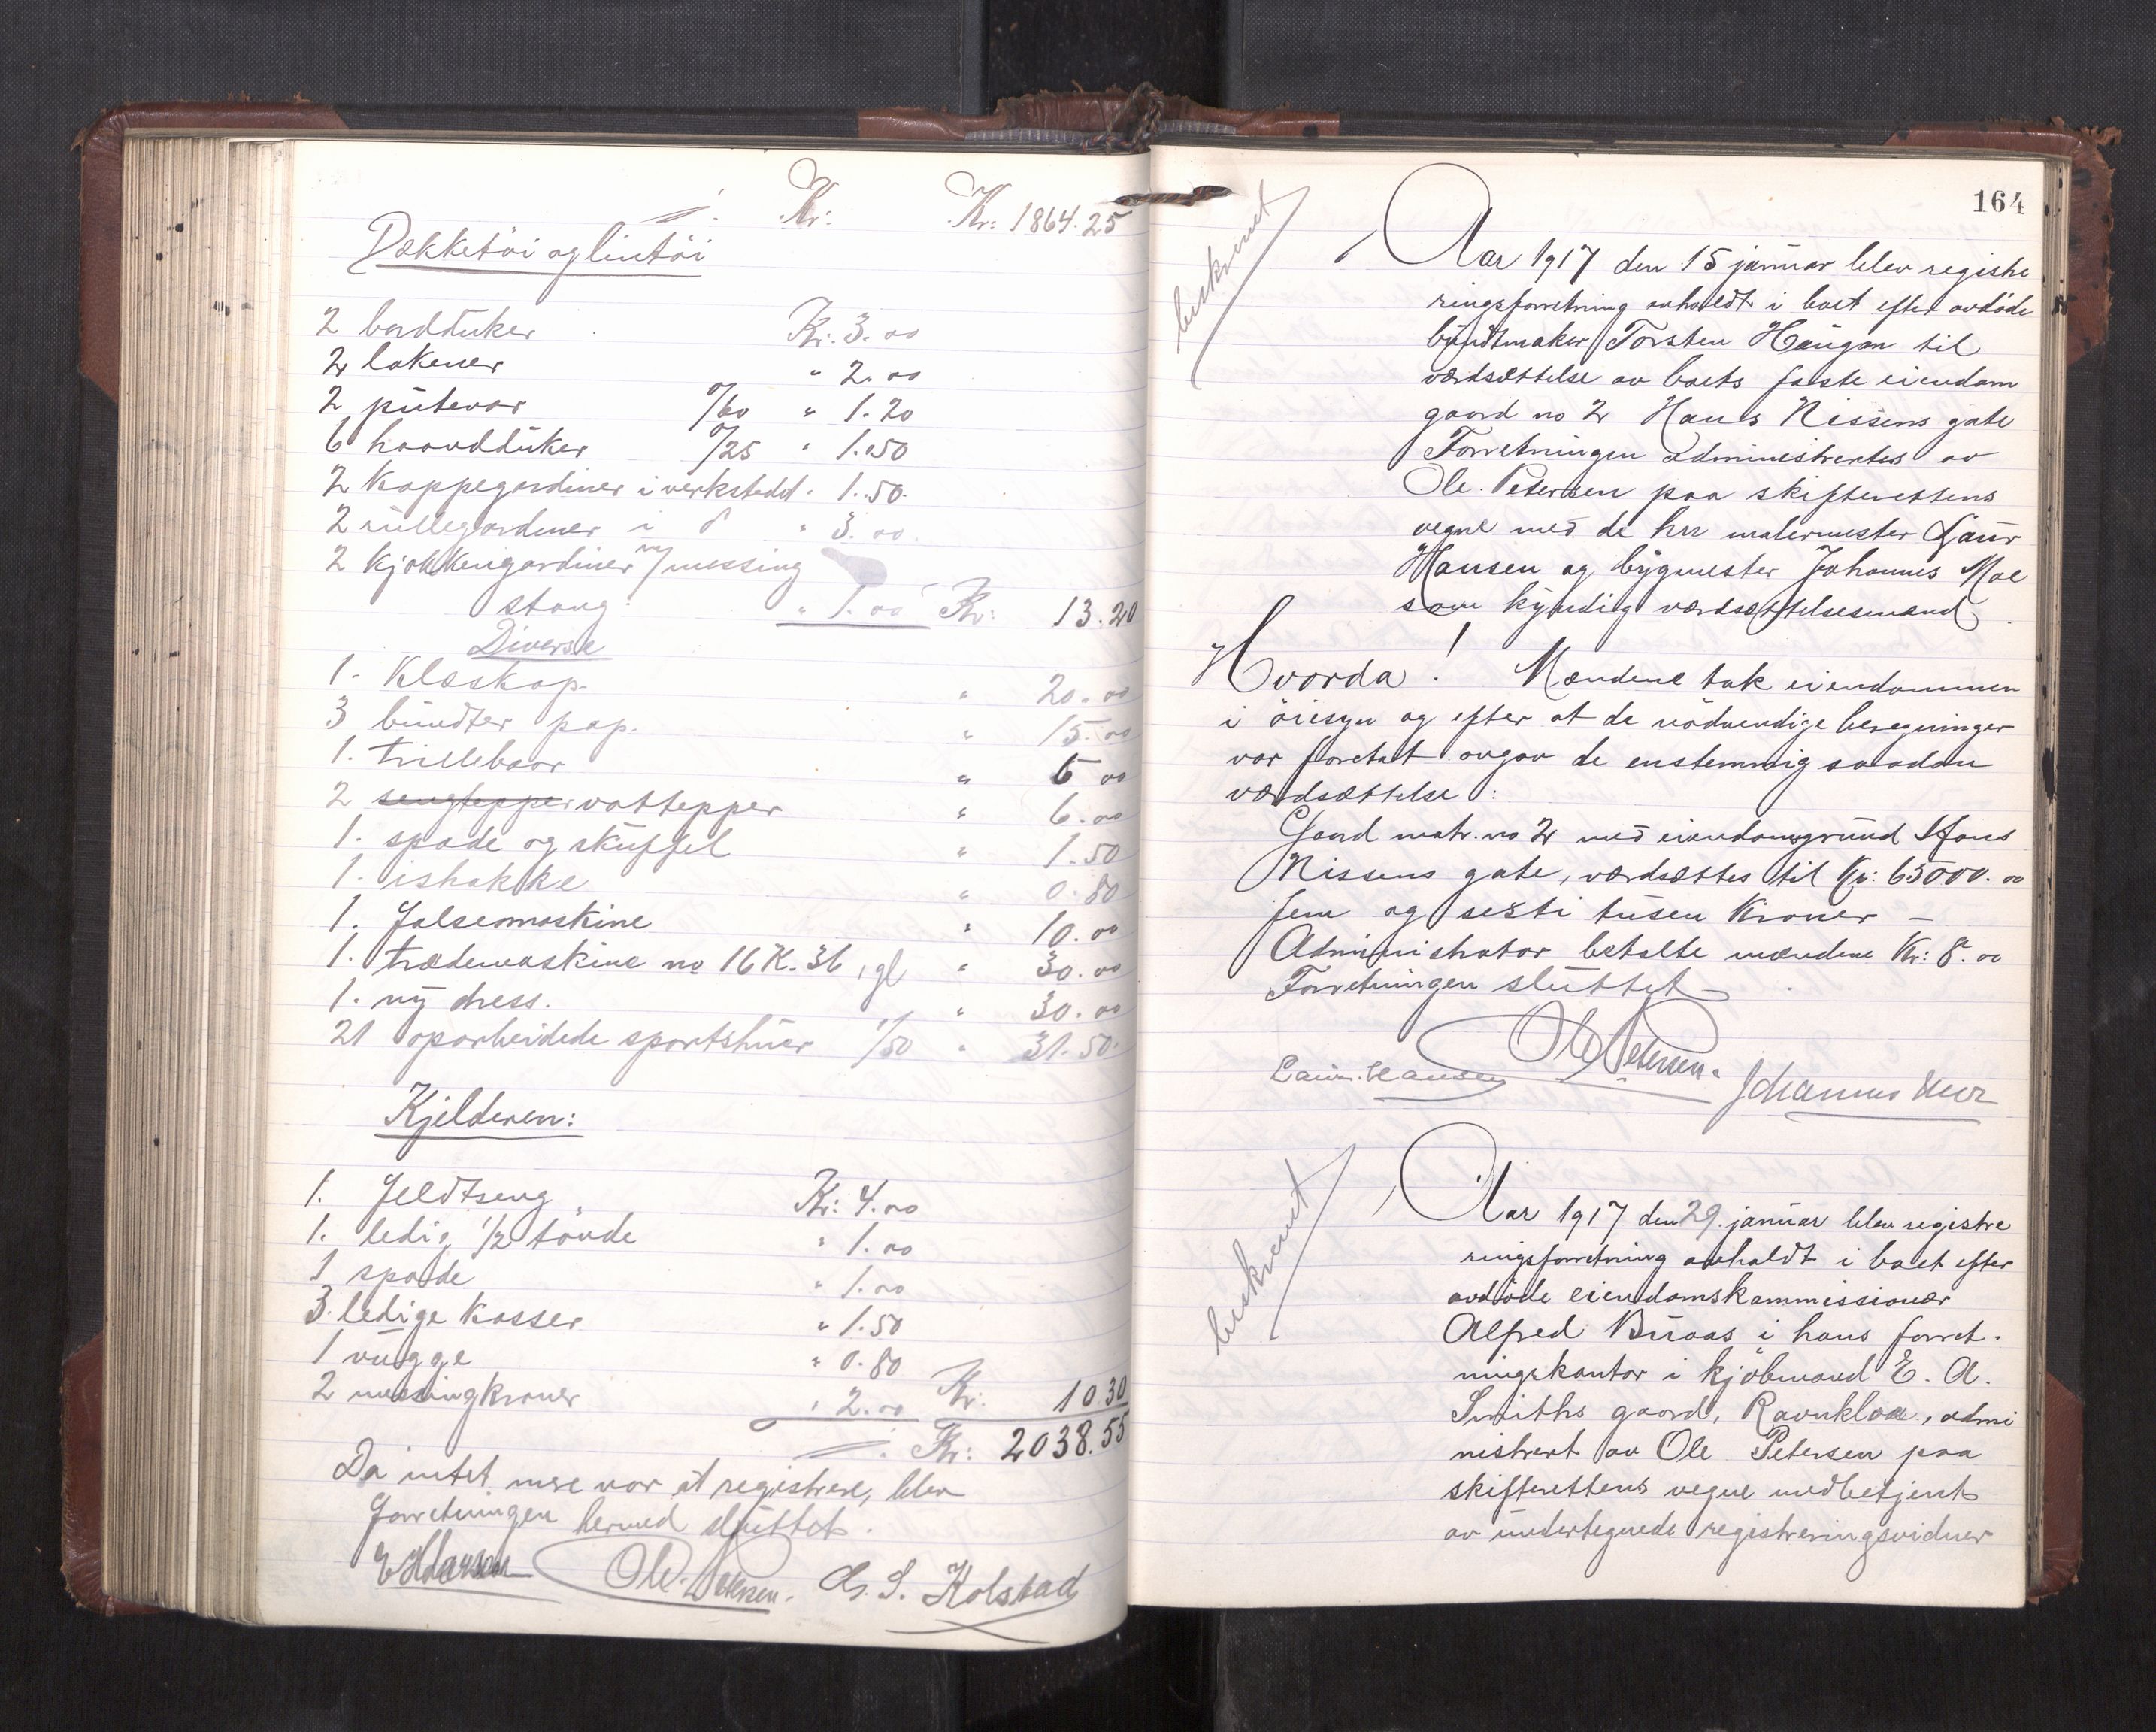 Kr: Kr: 1864.25
Dækketöi og lintöi
2 bordduker Kr: 3.00
2 lakener " 2.00
2 putevar a/60 " 1.20
6 haandduker a/25 " 1.50
2 Kappegardiner i verkstedet. 1.50.
2 rullegardiner i do " 3.00.
2 kjøkkengardiner m/messing
stang " 1.00 Kr: 13.20
Diverse
1. Klæskap. " 20.00
3 bundter pap. " 15.00
1. trillebaar " 5 00
2 sengtepper vattepper " 6.00
1. spade og skuffel " 1.50
1. ishakke " 0.80
1. falsemaskine " 10.00
1. trædemaskine no 16 K. 36, gl " 30.00
1. ny dress. " 30.00
21 oparbeidede sportshuer 1/50 " 31.50.
Kjelderen:
1. feldtseng Kr: 4.00
1. ledig 1/2 tönde " 1.00
1 spade " 1.00
3. ledige kasser " 1.50
1 vugge " 0.80
2 messingkroner " 2.00 Kr: 10.30
Kr: 2038.55
Da intet mere var at registrere, blev
forretningen hermed sluttet.
Ole Petersen. S. Kolstad
164
beskrevet
Aar 1917 den 15 januar blev registre
ringsforretning avholdt i boet efter avdöde
bundtmaker Torsten Haugan til
værdsættelse av boets faste eiendom
gaard no 2 Hans Nissens gate
Forretningen administrertes av
Ole Petersen paa skifterettens
vegne med de hrr malermester Laur
Hansen og bygmester Johannes Moe
som kyndig værdsættelsesmænd.
Hvorda! Mændene tok eiendommen
i öiesyn og efter at de nödvendige beregninger
var foretat avgav de enstemmig saadan
værdsættelse:
Gaard matr. no 2 med eiendomsgrund Hans
Nissens gate, værdsættes til Kr: 65000.00
fem og sesti tusen Kroner —
Administrator betalte mændene Kr: 8.00
Forretningen sluttet
Ole Petersen.
Laur. Hansen Johannes Moe
beskrevet
Aar 1917 den 29. januar blev registre
ringsforretning avholdt i boet efter
avdöde eiendomskommissionær
Alfred Buaas i hans forret-
ningskontor i kjöbmand E. A.
Smiths gaard, Ravnkloa, admi
nistrert av Ole Petersen paa
skifterettens vegne med betjent
av undertegnede registreringsvidner